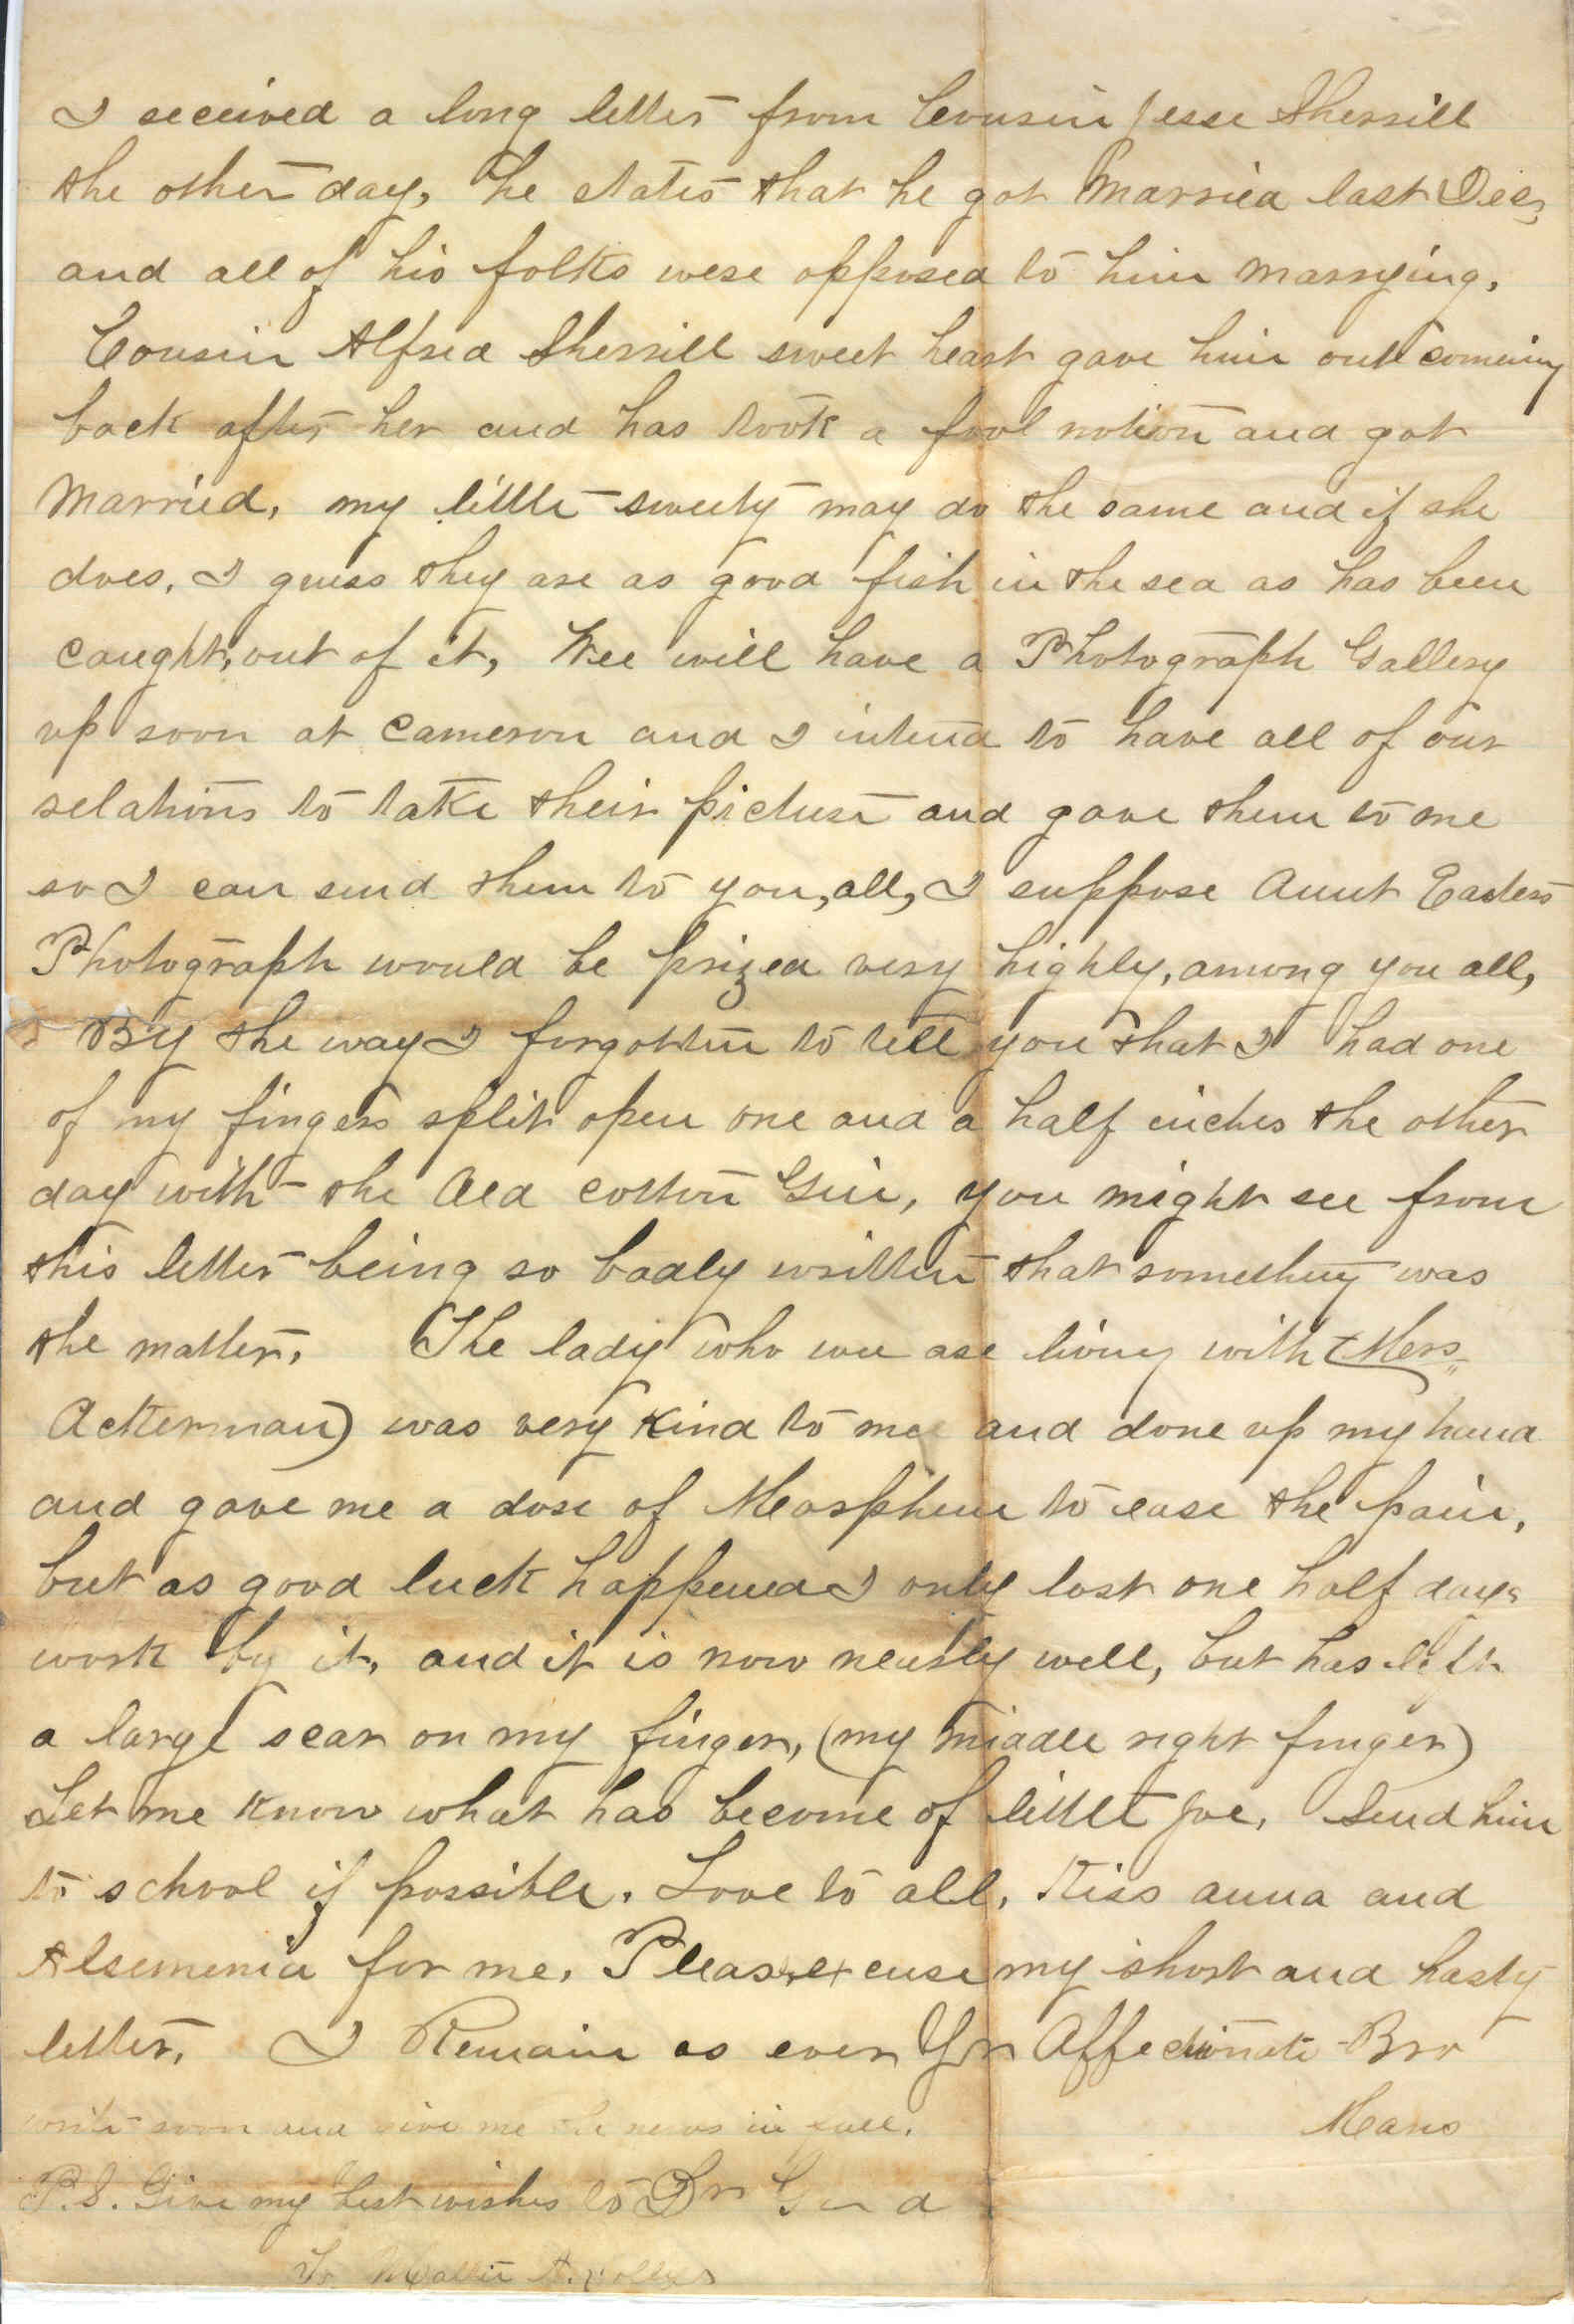 I received a long letter from Cousin Jesse Sherrill
the other day, he states that he got Married last Dec,
and all of his folks were opposed to him marrying,
Cousin Alfred Sherrill sweet heart gave him out comeing
back after her and has took a fool notion and got
Married, my little sweety may do the same and if she
does, I guess they are as good fish in the sea as has been
caught, out of it, Wee will have a Photograph Gallery
up soon at Cameron and I intend to have all of our
relations to take their picture and gave them to me
so I can send them to you, all, I suppose Aunt Easters
Photograph would be prized very highly, among you all,
By the way I forgotten to tell you that I had one
of my fingers split open one and a half inches the other
day with the Old cotton Gin, you might see from
this letter being so badly written that something was
the matter, The lady who wee are living with (Mrs
Ackerman) was very kind to me and done up my hand
and gave me a dose of Morphene to ease the pain,
but as good luck happened I only lost one half days
work by it, and it is now nearly well, but has left
a large scar on my finger, (my middle right finger)
Let me know what has become of little Joe, Send him
to school if possible. Love to all, Kiss anna and
Alsemenia for me, Please excuse my short and hasty
letter, I Remain as ever Yr Affectionate Bro
write soon and give me the news in full. Mans
P.S. Give my best wishes to Dr
To Mattie A.